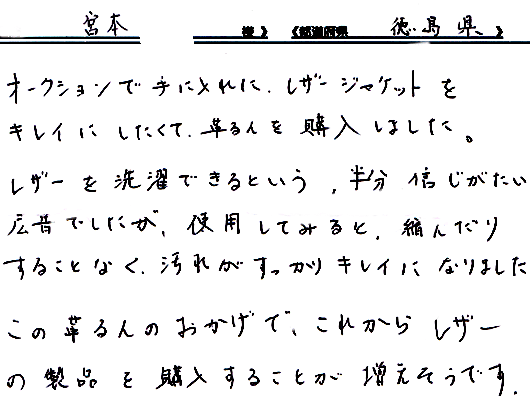 宮本 様》《都道府県 徳島県 》
オークションで手に入れた、レザージャケットを
キレイにしたくて、革るんを購入しました。
レザーを洗濯できるという、半分信じがたい
広告でしたが、使用してみると、縮んだり
することなく、汚れがすっかりキレイになりました
この革るんのおかげで、これからレザー
の製品を購入することが増えそうです。